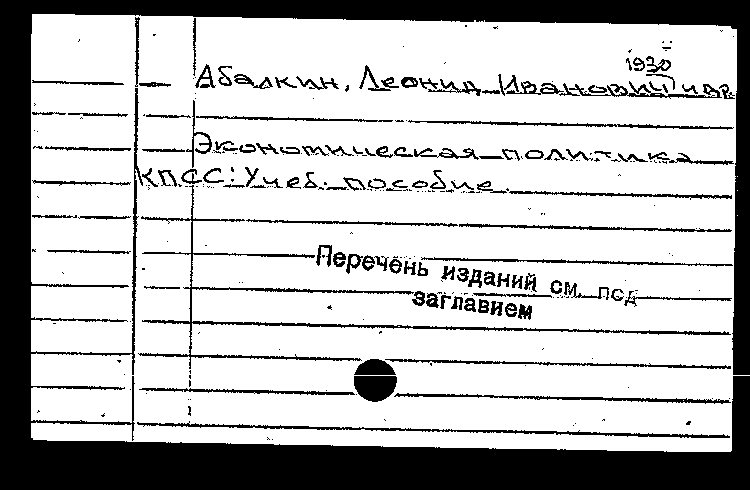 1930
Абалкин, Леонид Иванович и др.
Экономическая политика
КПСС: Учеб. пособие.
Перечень изданий см. под
заглавием